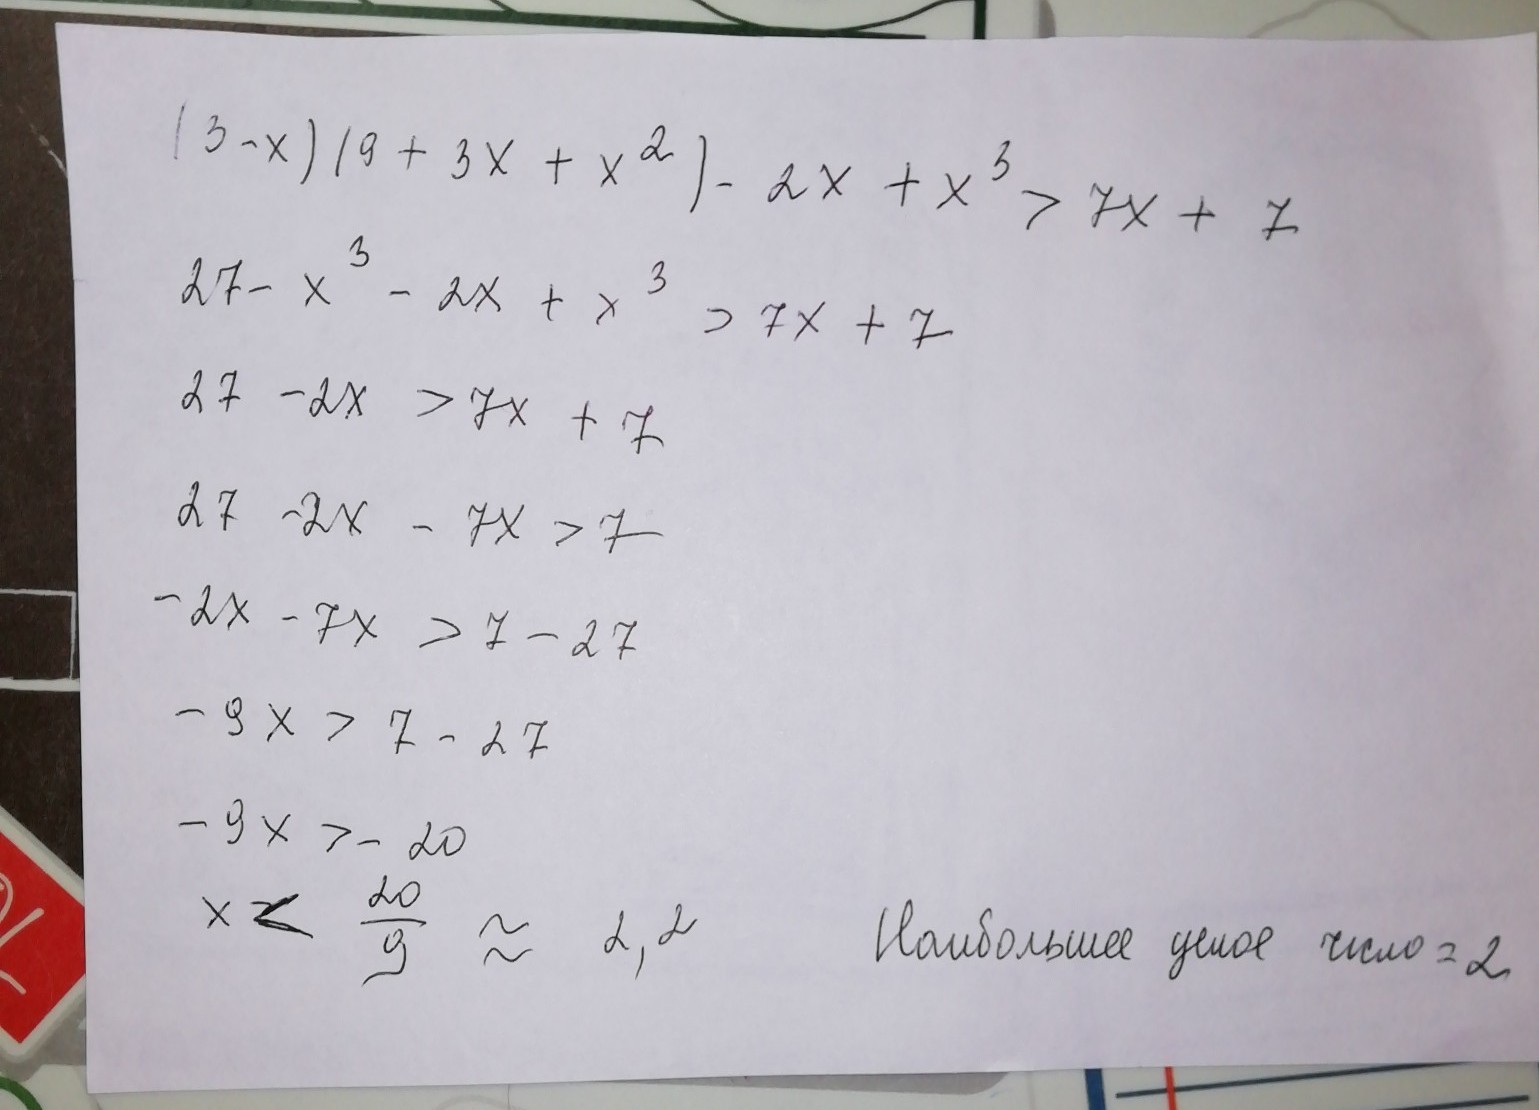 (3-x)(9+3x+x²)-2x+x³>7x+7
27-x³-2x+x³>7x+7
27-2x>7x+7
27-2x-7x>7
-2x-7x>7-27
-9x>7-27
-9x>-20
x<20/9≈2,2
Наибольшее целое число=2